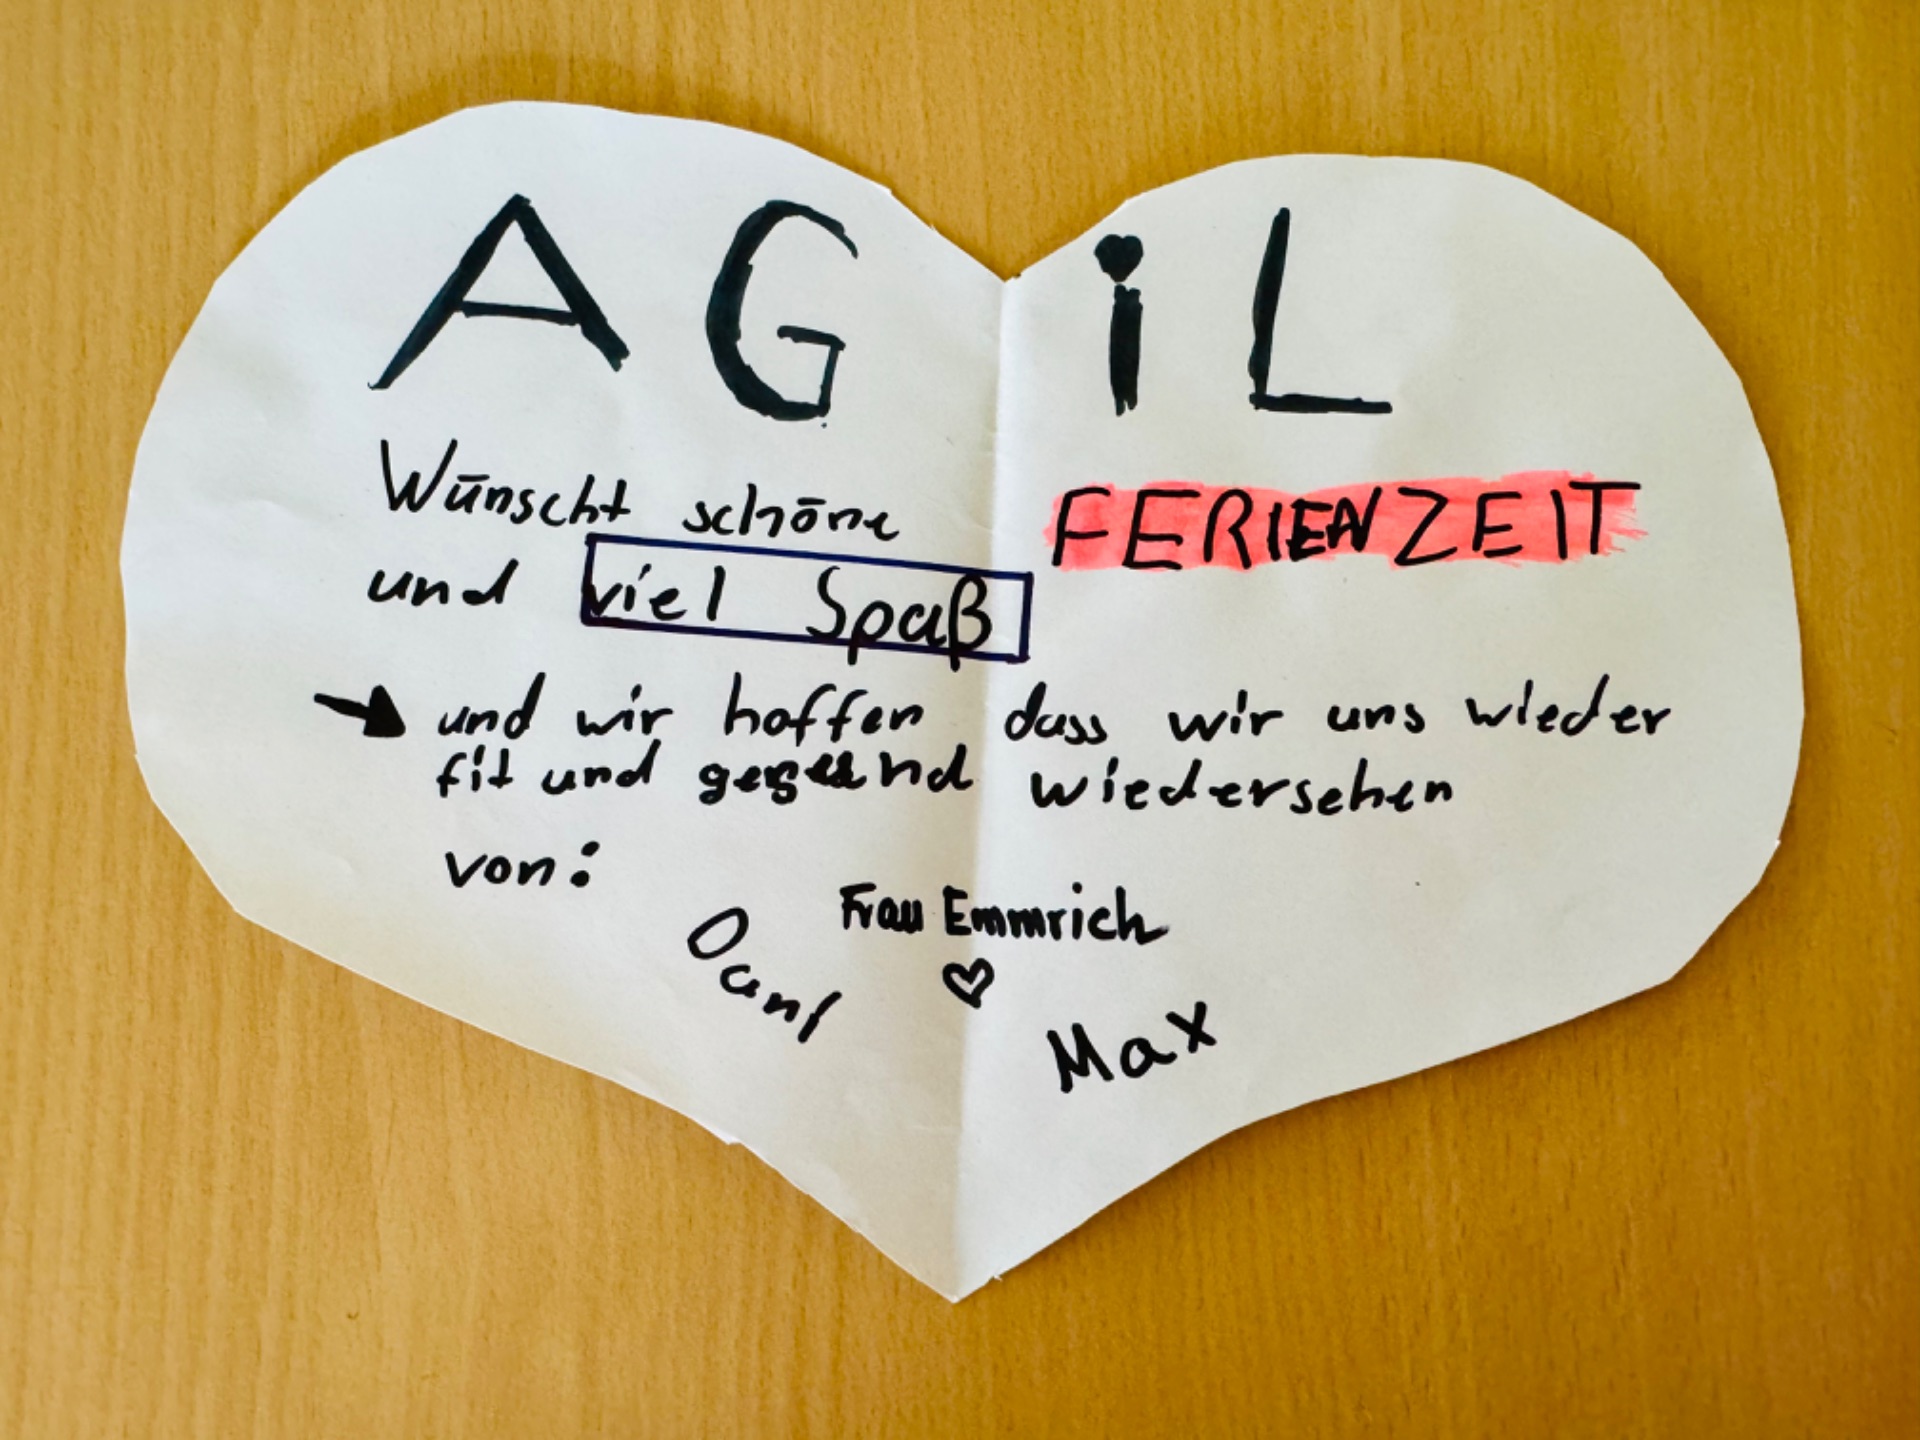 AGiL
Wünscht schöne FERIENZEIT
und viel Spaß
→ und wir hoffen dass wir uns wieder
fit und gesund wiedersehen
von:
Frau Emmrich
♡
Dani
Max